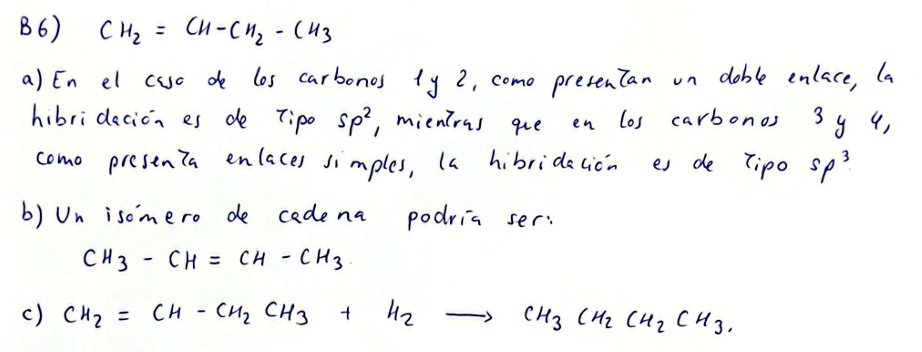 B6) CH₂ = CH-CH₂ - CH3
a) En el caso de los carbonos 1 y 2, como presentan un doble enlace, la
hibridación es de tipo sp², mientras que en los carbonos 3 y 4,
como presenta enlaces simples, la hibridación es de tipo sp³.
b) Un isómero de cadena podría ser:
CH3 - CH = CH - CH3.
c) CH₂ = CH - CH₂ CH3 + H₂ ⟶ CH3 CH2 CH2 CH3.